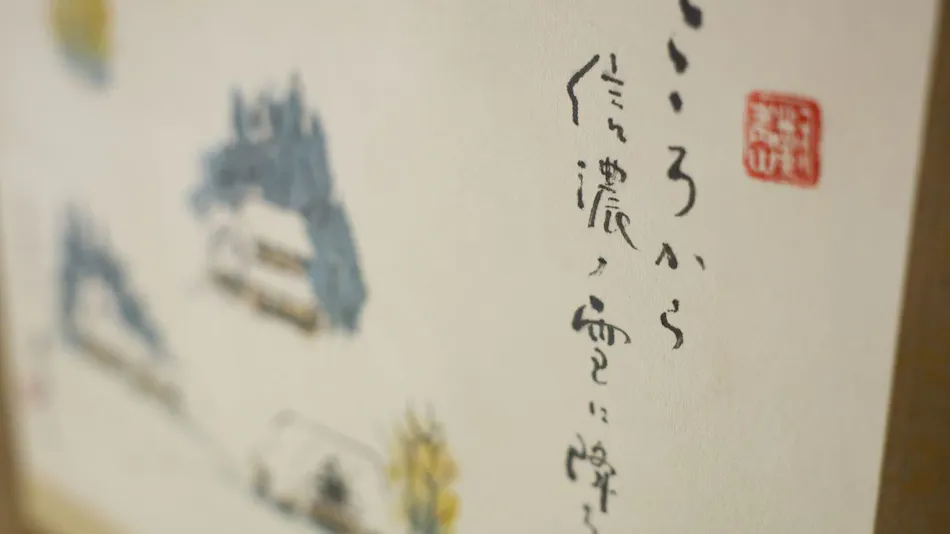 こゝろから
信濃の雪に降